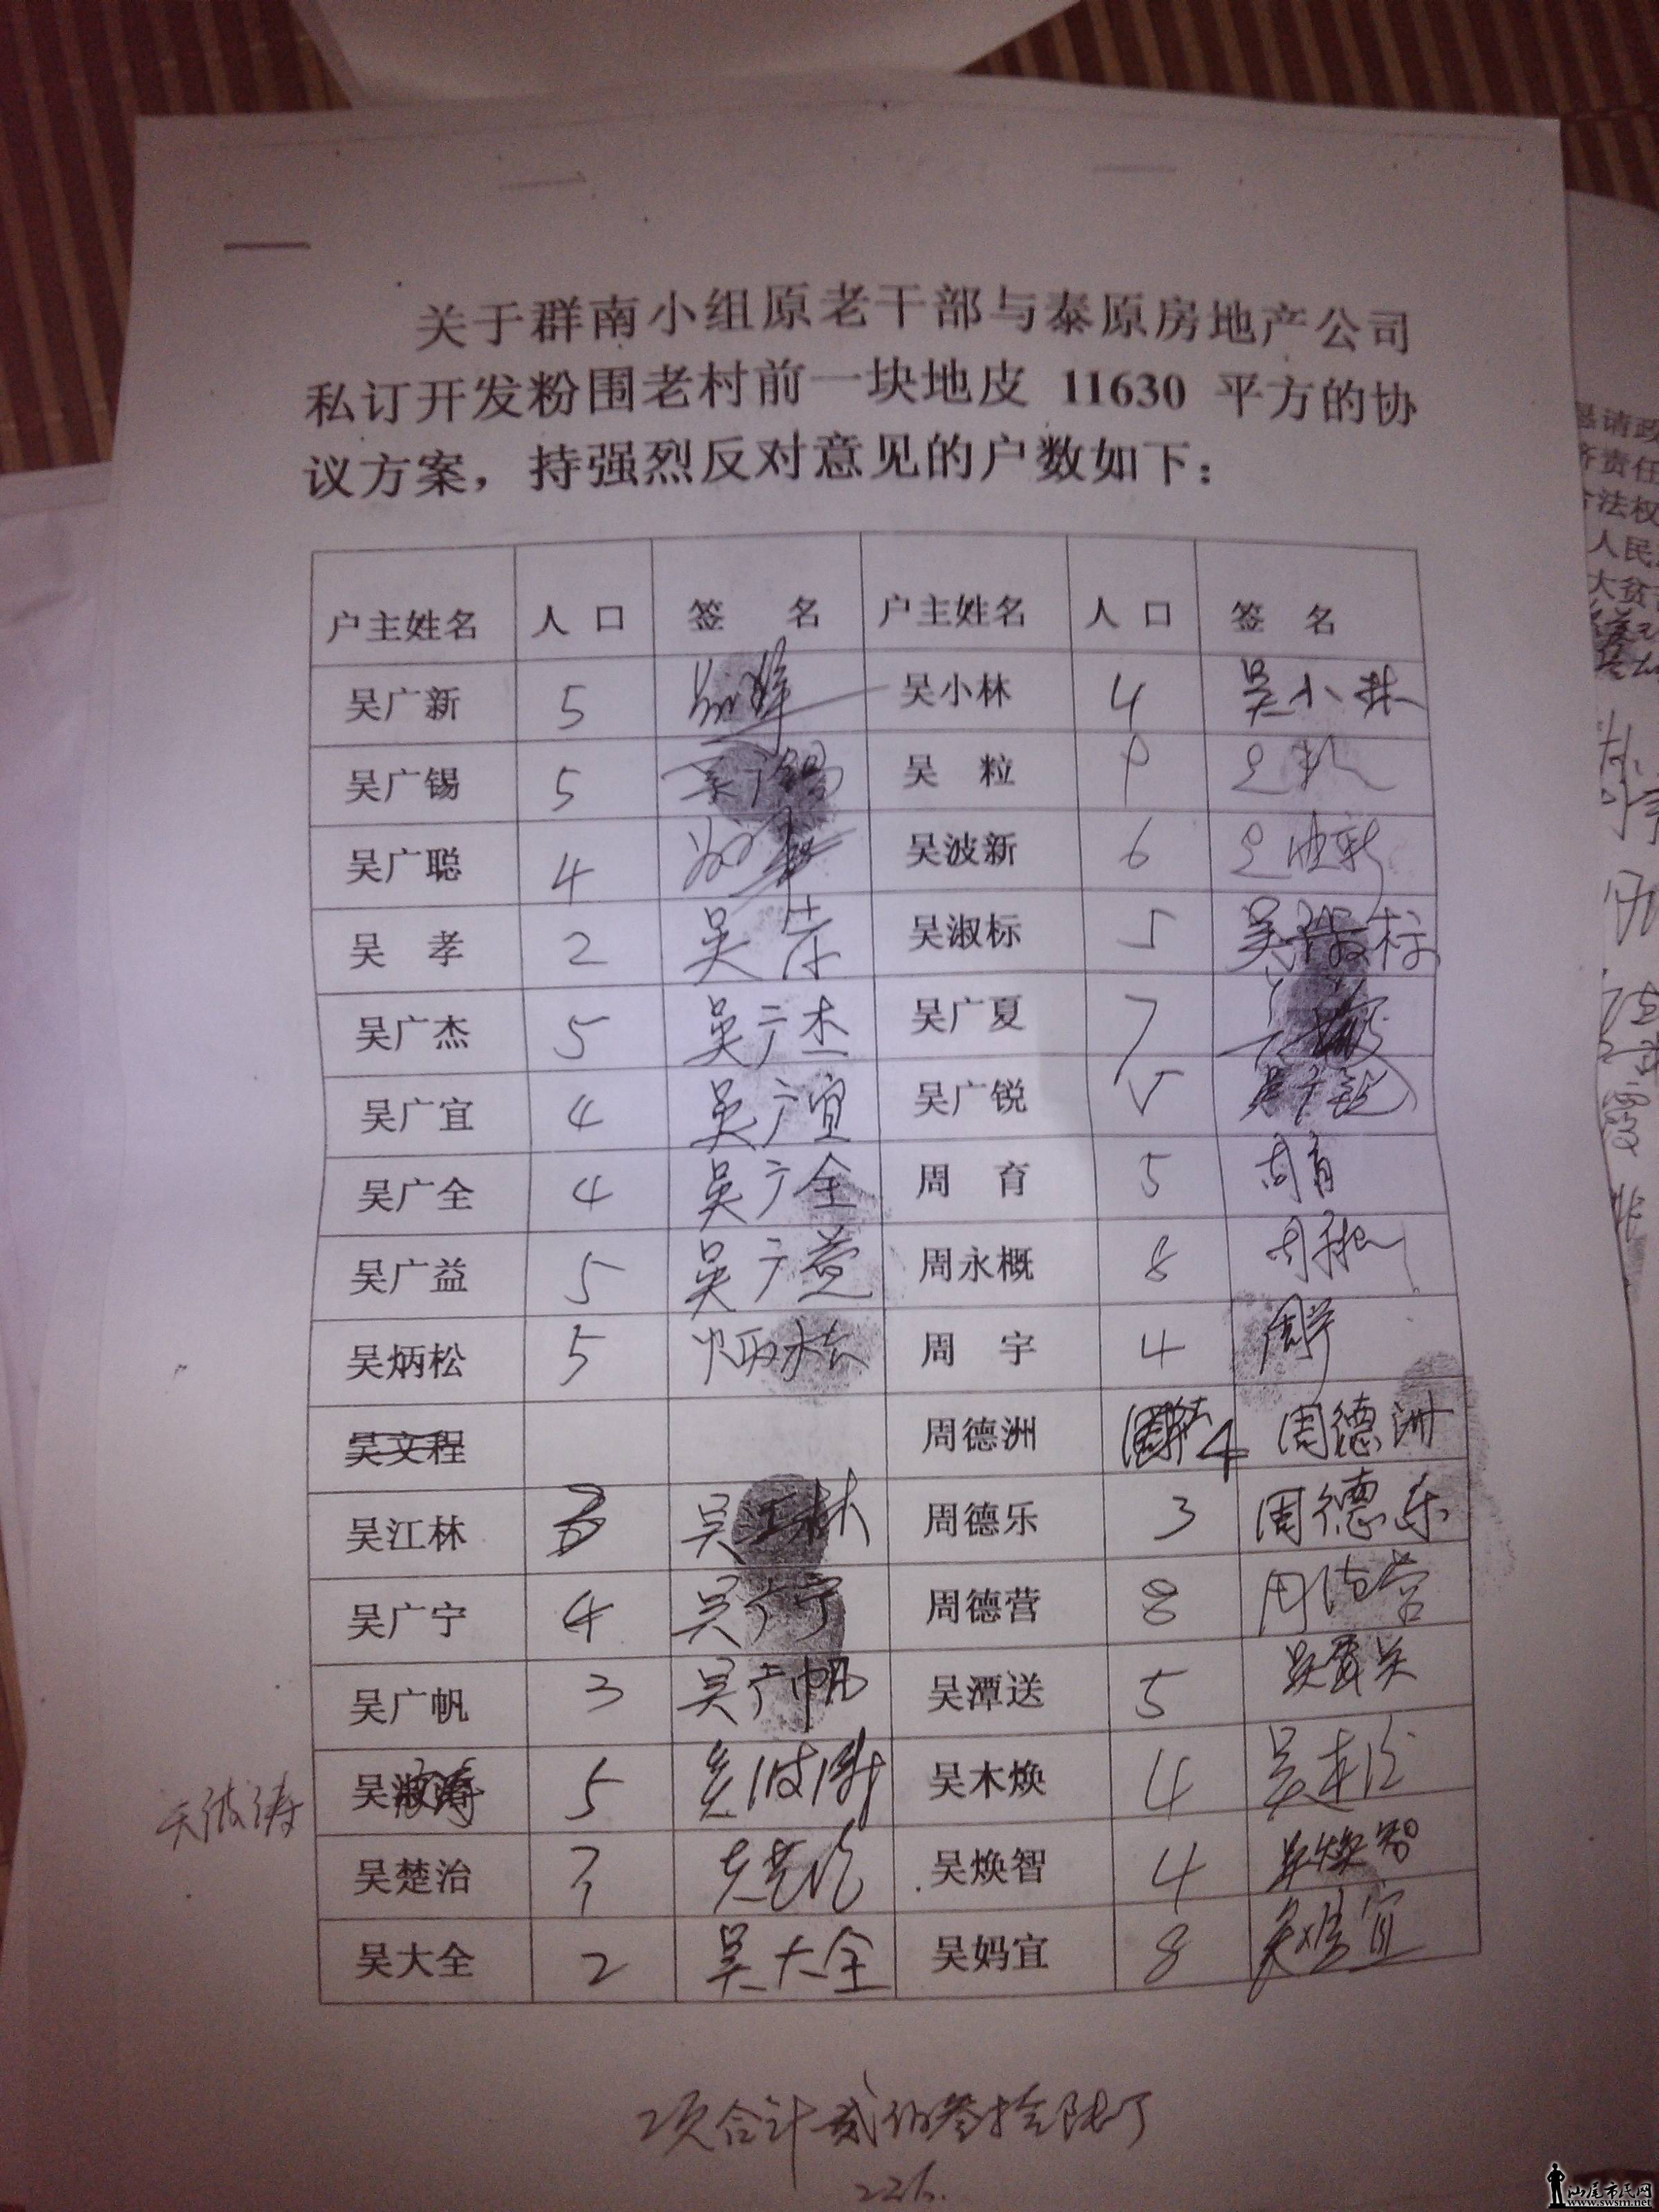 关于群南小组原老干部与泰原房地产公司
私订开发粉围老村前一块地皮 11630 平方的协
议方案，持强烈反对意见的户数如下：
户主姓名 人口 签名 户主姓名 人口 签名
吴广新 5 吴小林 4 吴小林
吴广锡 5 吴广锡 吴粒
吴广聪 4 吴波新 6 吴波新
吴孝 2 吴 吴淑标 5 吴淑标
吴广杰 5 吴广杰 吴广夏 7
吴广宜 4 吴广宜 吴广锐 5 吴广锐
吴广全 4 吴广全 周育 5 周育
吴广益 5 吴广益 周永概 8 周
吴炳松 5 炳松 周宇 4 周宇
吴文程 周德洲 4 周德洲
吴江林 吴江林 周德乐 3 周德乐
吴广宁 4 吴广宁 周德营 8 周德营
吴广帆 3 吴广帆 吴潭送 5 吴
吴波涛 吴 5 吴波涛 吴木焕 4 吴
吴楚治 7 吴楚治 吴焕智 4 吴焕智
吴大全 2 吴大全 吴妈宜 8 吴妈宜
2页合计贰佰叁拾
汕尾市民网
www.swsm.net
恳请政
责任
法权
人民
大贫